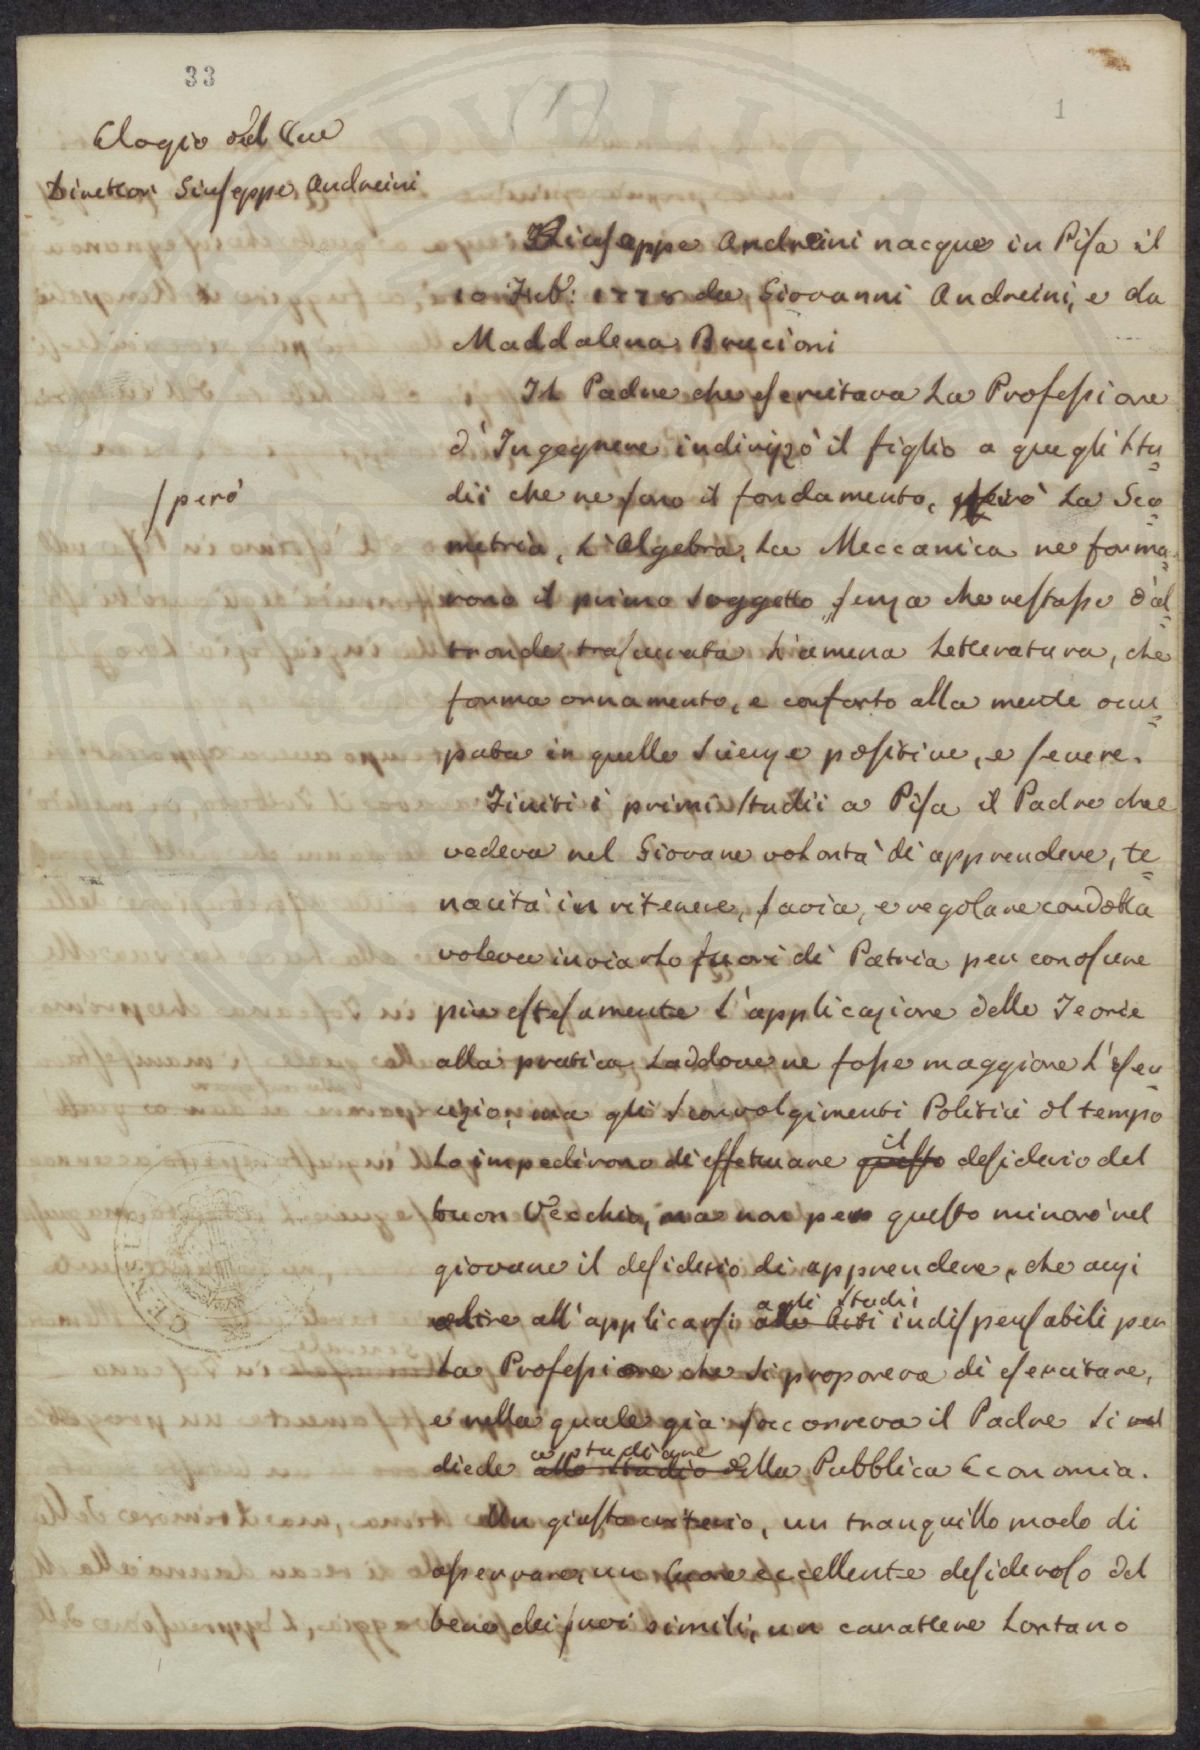 33
1
Elogio del Cav
Direttor Giuseppe Andreini
Giuseppe Andreini nacque in Pisa il
10 Feb: 1778 da Giovanni Andreini, e da
Maddalena Brucioni
Il Padre che esercitava la Professione
d'Ingegnere indirizzò il figlio a quegli Stu=
dii che ne sono il fondamento, però la Geo=
/però
metria, l'Algebra, la Meccanica ne forma=
rono il primo soggetto senza che restasse d'al=
tronde trascurata l'amena letteratura, che
forma ornamento, e conforto alla mente occu=
pata in quelle scienze positive, e severe.
Finiti i primi studii a Pisa il Padre che
vedeva nel Giovane volontà di apprendere, te=
nacità in ritenere, savia, e regolare condotta
voleva inviarlo fuori di Patria per conoscere
più estesamente l'applicazione delle Teorie
alla pratica laddove ne fosse maggiore l'esecu=
zione, ma gli sconvolgimenti Politici del tempo
lo impedirono di effettuare questo il desiderio del
buon Vecchio, ma non per questo minorò nel
giovane il desiderio di apprendere, che anzi
oltre all'applicarsi alle Arti agli studi indispensabili per
la Professione che si proponeva di esercitare,
e nella quale già soccorreva il Padre si
diede allo studio a studiare della Pubblica Economia.
Un giusto criterio, un tranquillo modo di
osservare, un Cuore eccellente desideroso del
bene dei suoi simili, un carattere lontano